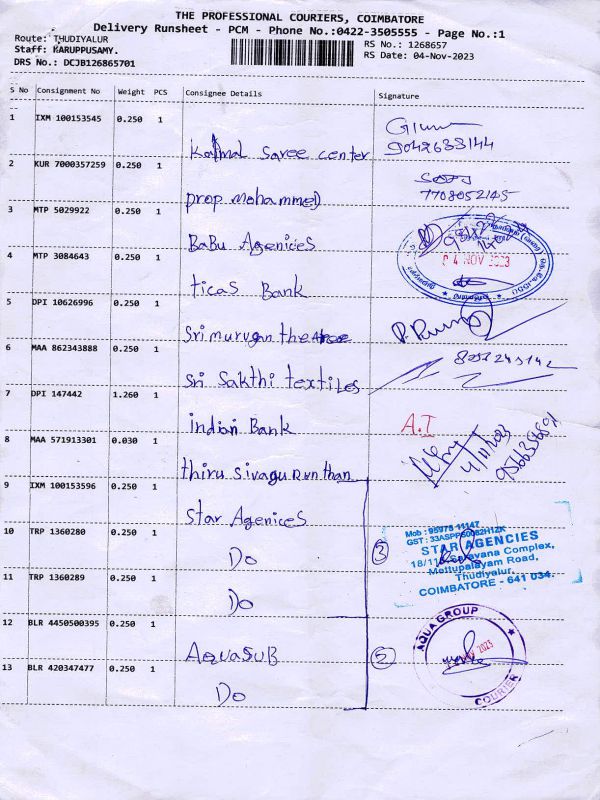 THE PROFESSIONAL COURIERS, COIMBATORE
Delivery Runsheet - PCM - Phone No.:0422-3505555 - Page No.:1
Route: THUDIYALUR
Staff: KARUPPUSAMY.
DRS No.: DCJB126865701
RS No.: 1268657
RS Date: 04-Nov-2023
S No Consignment No Weight PCS Consignee Details Signature
1 IXM 100153545 0.250 1
Kamal Saree center
9042633144
2 KUR 7000357259 0.250 1
prop. mohammed
7708052145
3 MTP 5029922 0.250 1
BaBu Agenices
4 MTP 3084643 0.250 1
04 NOV 2023
ticas Bank
5 DPI 10626996 0.250 1
Sri murugan
6 MAA 862343888 0.250 1
Sri Sakthi textiles
7 DPI 147442 1.260 1
indian Bank A.I
8 MAA 571913301 0.030 1
4/11/2023
thiru sivagurunthan
9 IXM 100153596 0.250 1
Star Agenices
10 TRP 1360280 0.250 1
Do
3
Mob : 95975 11147
STAR AGENCIES
Complex,
Mettupalayam Road,
Thudiyalur,
COIMBATORE - 641 034.
11 TRP 1360289 0.250 1
Do
12 BLR 4450500395 0.250 1
AQUASUB
2
AQUA GROUP
2023
COURIER
13 BLR 420347477 0.250 1
Do